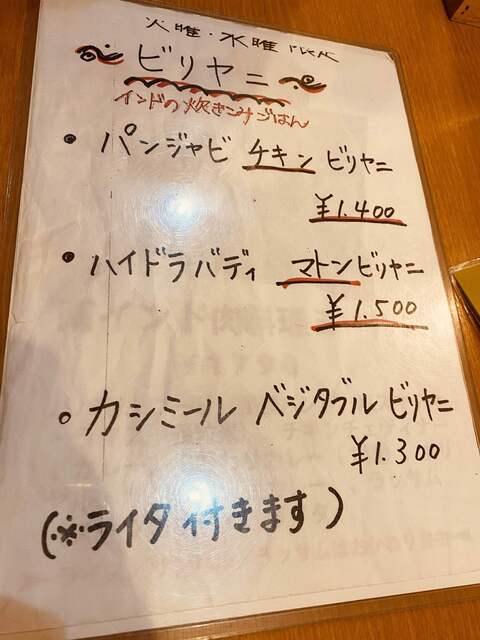 火曜・水曜限定
ビリヤニ
インドの炊きこみごはん
● パンジャビ チキン ビリヤニ
¥1.400
● ハイドラバディ マトンビリヤニ
¥1.500
○ カシミール ベジタブル ビリヤニ
¥1.300
(※ライタ付きます)